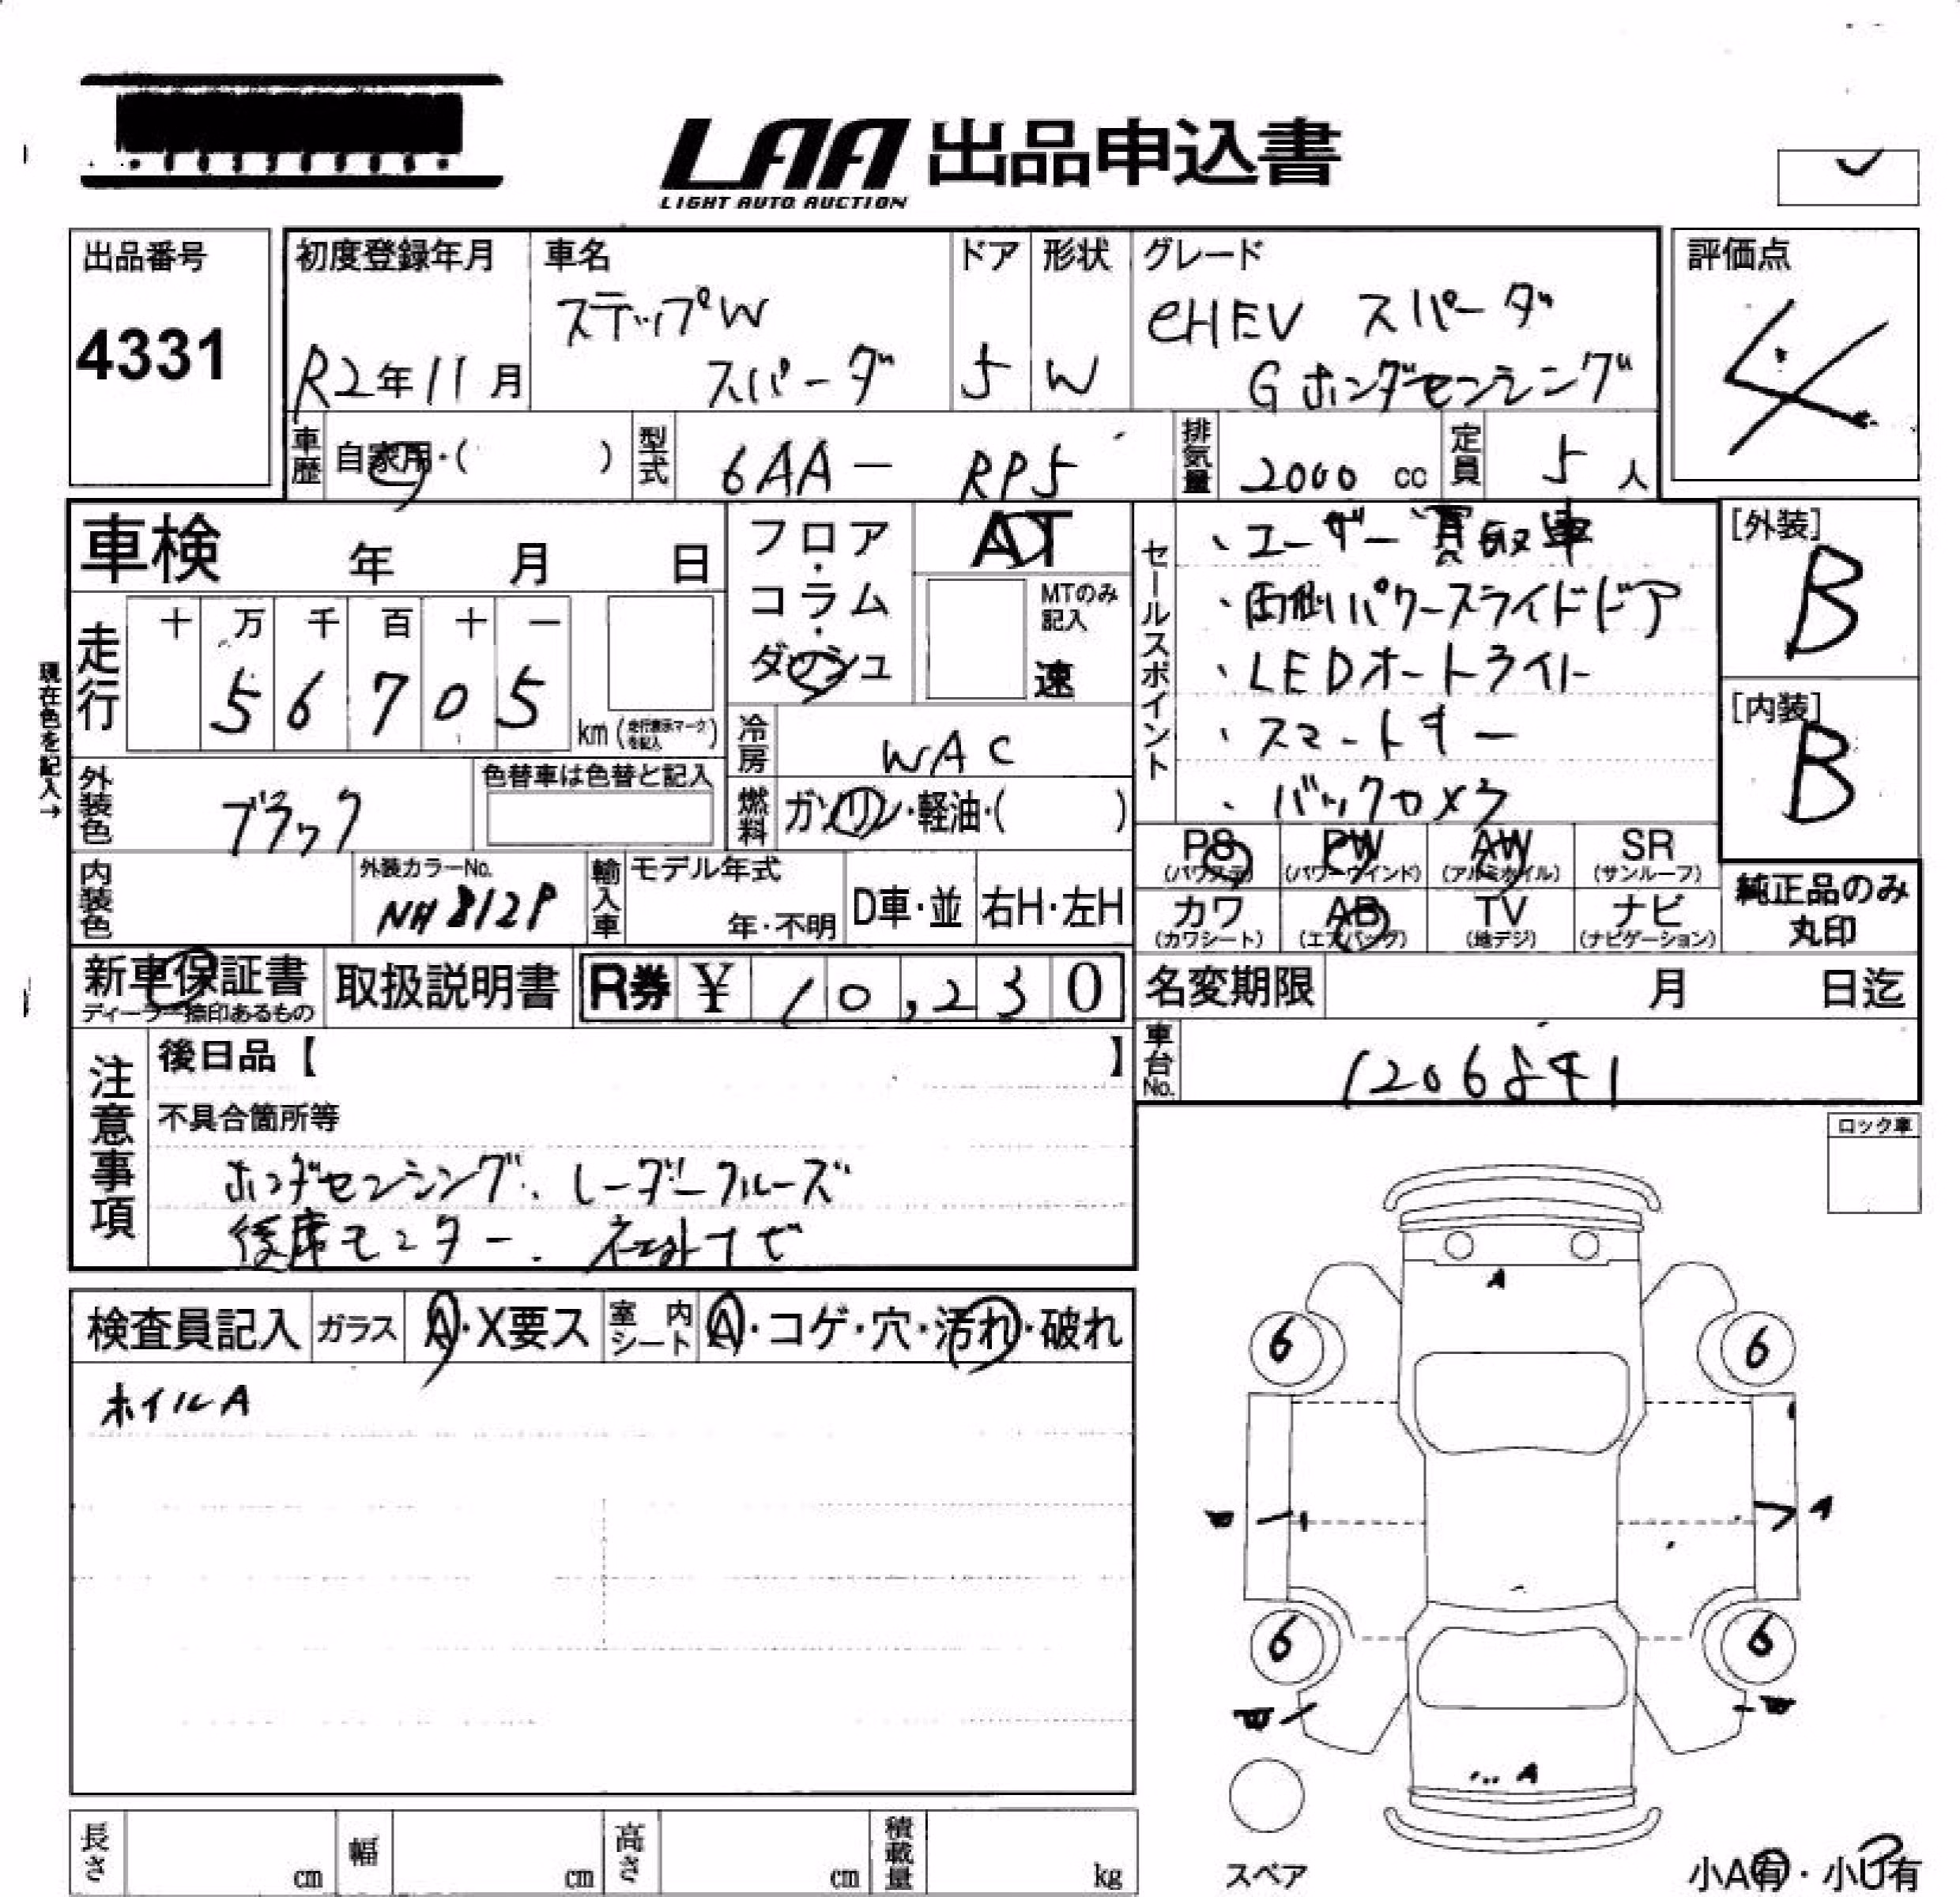 LAA 出品申込書
LIGHT AUTO AUCTION
出品番号
4331
初度登録年月
R2年11月
車名
ステップW
スパーダ
ドア
5
形状
W
グレード
eHEV スパーダ
Gホンダセンシング
評価点
4
車歴
自家用・( )
型式
6AA- RP5
排気量
2000 cc
定員
5 人
車検 年 月 日
走行
十 万 千 百 十 一
5 6 7 0 5
km (走行表示マークを記入)
現在色を記入→
外装色
ブラック
色替車は色替と記入
内装色
外装カラーNo.
NH812P
輸入車
モデル年式
年・不明
D車・並
右H・左H
フロア・
コラム・
ダッシュ
AT
MTのみ
記入
速
冷房
WAC
燃料
ガソリン・軽油・( )
セールスポイント
、ユーザー買取車
・両側パワースライドドア
、LEDオートライト
、スマートキー
、バックカメラ
[外装]
B
[内装]
B
PS
(パワステ)
PW
(パワーウインド)
AW
(アルミホイル)
SR
(サンルーフ)
カワ
(カワシート)
AB
(エアバッグ)
TV
(地デジ)
ナビ
(ナビゲーション)
純正品のみ
丸印
新車保証書
ディーラー捺印あるもの
取扱説明書
R券 ¥ 10,230
名変期限 月 日迄
車台No.
1206841
注意事項
後日品【 】
不具合箇所等
ホンダセンシング、レーダークルーズ
後席モニター、社外ナビ
ロック車
検査員記入
ガラス
A・X要ス
室内シート
A・コゲ・穴・汚れ・破れ
ホイルA
A
6
6
A
6
6
A
スペア
小A有・小U有
長さ cm
幅 cm
高さ cm
積載量 kg